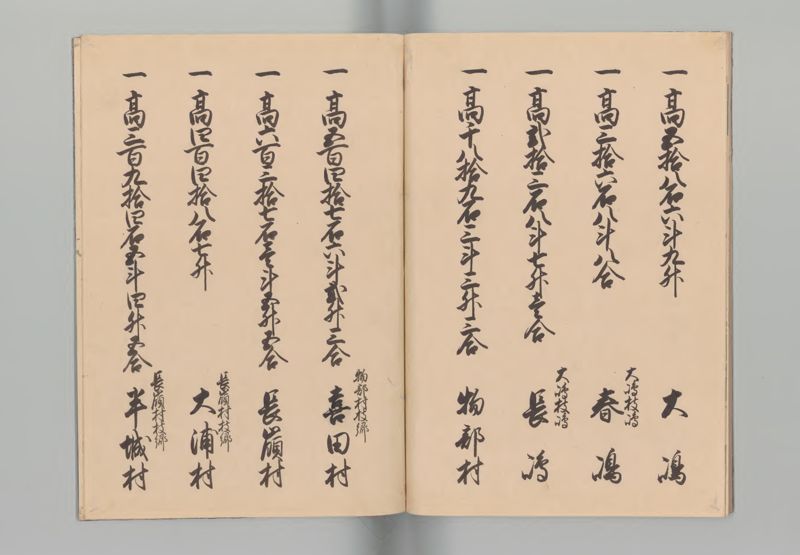 一 高五拾八石六斗九升 大嶋
一 高三拾六石八斗八合
大嶋枝嶋
春嶋
一 高弐拾三石八斗七升壱合
大嶋枝嶋
長嶋
一 高千八拾九石三斗三升三合 物部村
一 高五百四拾七石六斗弐升三合
物部村枝郷
喜田村
一 高六百三拾七石壱斗五升五合 長嶺村
一 高四百四拾八石七升
長嶺村枝郷
大浦村
一 高三百九拾四石五斗四升五合
長嶺村枝郷
半城村